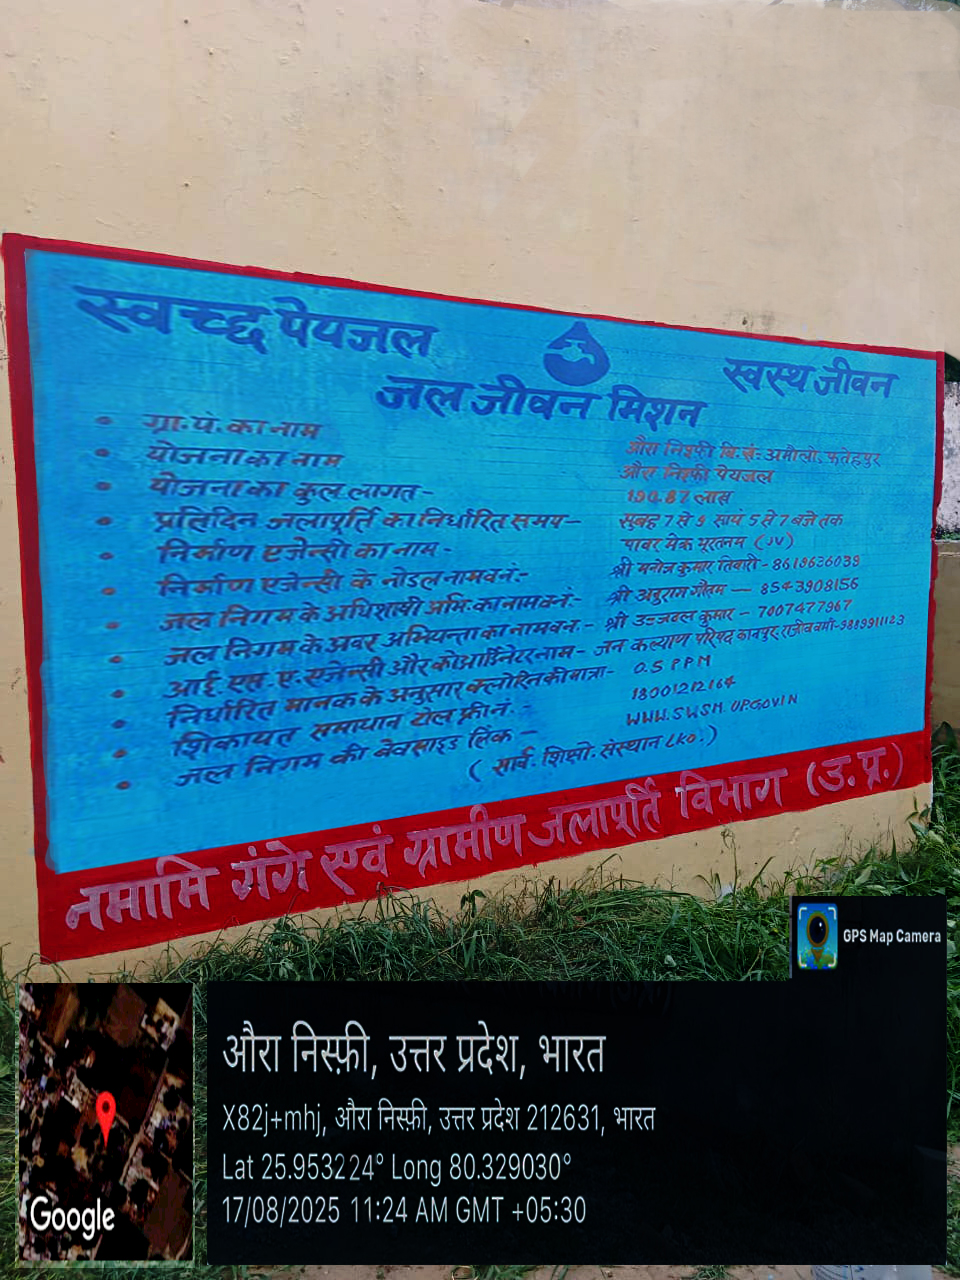 स्वच्छ पेयजल
स्वस्थ जीवन
जल जीवन मिशन
ग्रा.पं. का नाम औरा निस्फी वि.खं:- अमौली, फतेहपुर
योजना का नाम औरा निस्फी पेयजल
योजना का कुल लागत - 190.87 लाख
प्रतिदिन जलापूर्ति का निर्धारित समय - सुबह 7 से 9 सायं 5 से 7 बजे तक
निर्माण एजेन्सी का नाम - पावर मेक भूरतनम (JV)
निर्माण एजेन्सी के नोडल नाम व नं:- श्री मनोज कुमार तिवारी - 8619636039
जल निगम के अधिशाषी अभि. का नाम व नं:- श्री अनुराग गौतम — 8543908156
जल निगम के अवर अभियन्ता का नाम व नं. - श्री उज्जवल कुमार - 7007477967
आई. एस. ए. एजेन्सी और कोआर्डिनेटर नाम - जन कल्याण परिषद कानपुर, राजीव वर्मा - 9889911123
निर्धारित मानक के अनुसार क्लोरिन की मात्रा - 0.5 PPM
शिकायत समाधान टोल फ्री नं. - 18001212164
जल निगम की वेवसाइड लिंक - WWW.SWSM.UP.GOV.IN
( सार्व. शिक्षो. संस्थान LKO. )
नमामि गंगे एवं ग्रामीण जलापूर्ति विभाग (उ.प्र.)
GPS Map Camera
औरा निस्फ़ी, उत्तर प्रदेश, भारत
X82j+mhj, औरा निस्फ़ी, उत्तर प्रदेश 212631, भारत
Lat 25.953224° Long 80.329030°
17/08/2025 11:24 AM GMT +05:30
Google